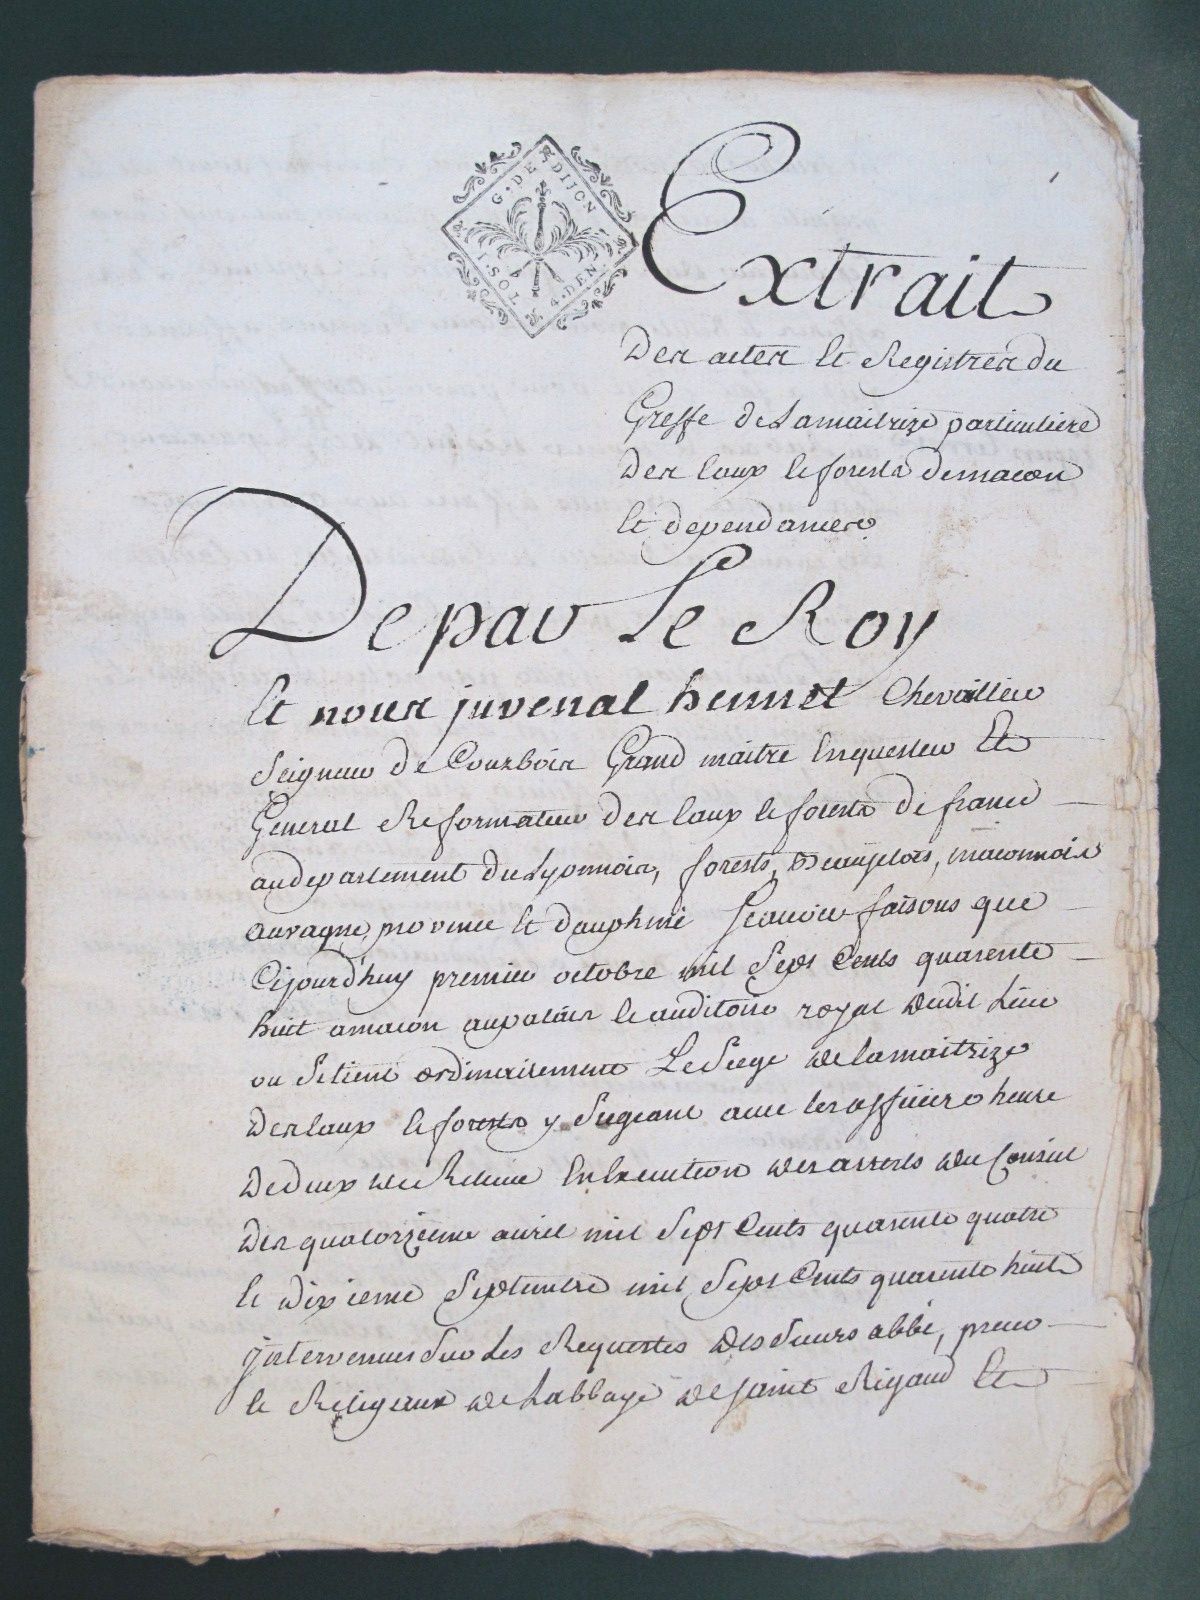 G. DE DIJON
1 SOL 4. DEN
Extrait
Des actes Et Registres du
Greffe de Lamaitrize particuliere
Des Eaux Et forests demacon
Et dependances
De par Le Roy
Et nous juvenal hennet Chevallier
Seigneur de Courbois Grand maitre Enquesteur Et
General Reformateur Des Eaux Et forests de france
audepartement du Lyonnois, forests, Beaujolois, maconnois
auvagne, provence Et dauphiné Scavoir faisons que
Cejourd'huy premier octobre mil Sept Cents quarente
huit amacon aupalais Et auditoire royal dudit Lieu
ou Setient ordinairement Le Siege de lamaitrize
Des Eaux Et forests y Siegeant avec les officiers heure
Dedeux de Relevée En Execution des arrests du Conseil
Des quatorzieme avril mil Sept Cents quarente quatre
Et dixieme Septembre mil Sept Cents quarente huit
jntervenus Sur Les Requestes des Sieurs abbé, prieur
Et Religieux de Labbaye de Saint Rigaud Et